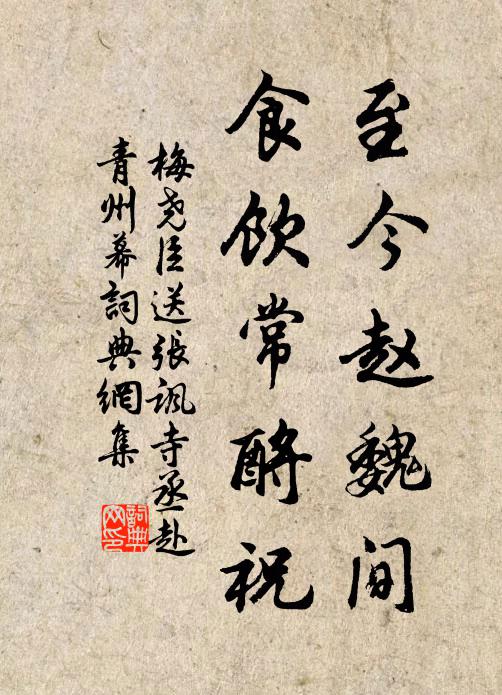 至今赵魏间
食饮常酹祝
梅尧臣送張諷寺丞赴
青州幕詞典網集
詞典
网印